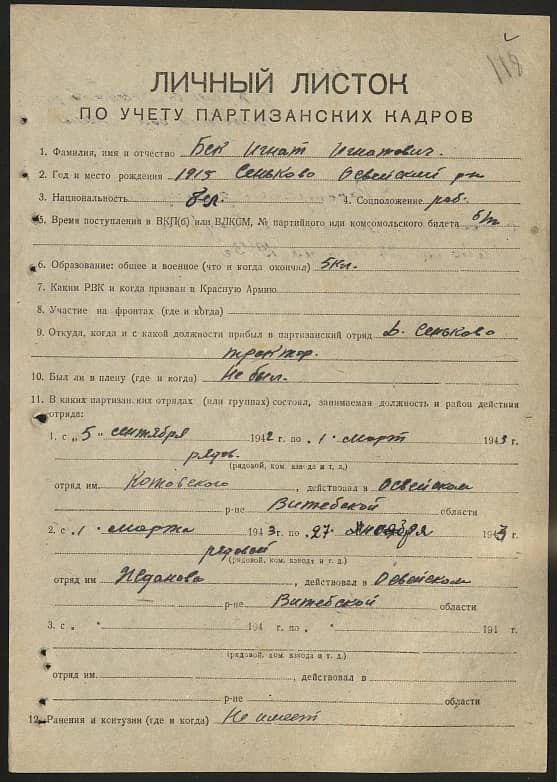 118
ЛИЧНЫЙ ЛИСТОК
ПО УЧЕТУ ПАРТИЗАНСКИХ КАДРОВ
1. Фамилия, имя и отчество Бек Игнат Игнатович.
2. Год и место рождения 1915 Сеньково Освейский р-н
3. Национальность бел. 4. Соцположение раб.
5. Время поступления в ВКП(б) или ВЛКСМ, № партийного или комсомольского билета б/п
6. Образование: общее и военное (что и когда окончил) 5 кл.
7. Каким РВК и когда призван в Красную Армию
8. Участие на фронтах (где и когда)
9. Откуда, когда и с какой должности прибыл в партизанский отряд д. Сеньково
10. Был ли в плену (где и когда) Не был.
11. В каких партизанских отрядах (или группах) состоял, занимаемая должность и район действия
отряда:
1. с „5" сентября 1942 г. по „1" март 1943 г.
рядов.
(рядовой, ком. взвода и т. д.)
отряд им. Котовского, действовал в Освейском
р-не Витебской области
2. с „1" марта 1943 г. по „27" 1943 г.
рядовой
(рядовой, ком. взвода и т. д.)
отряд им, действовал в Освейском
р-не Витебской области
3. с „ " 194 г. по „ " 194 г.
(рядовой, ком. взвода и т. д.)
отряд им., действовал в
р-не области
12. Ранения и контузии (где и когда) Не имеет